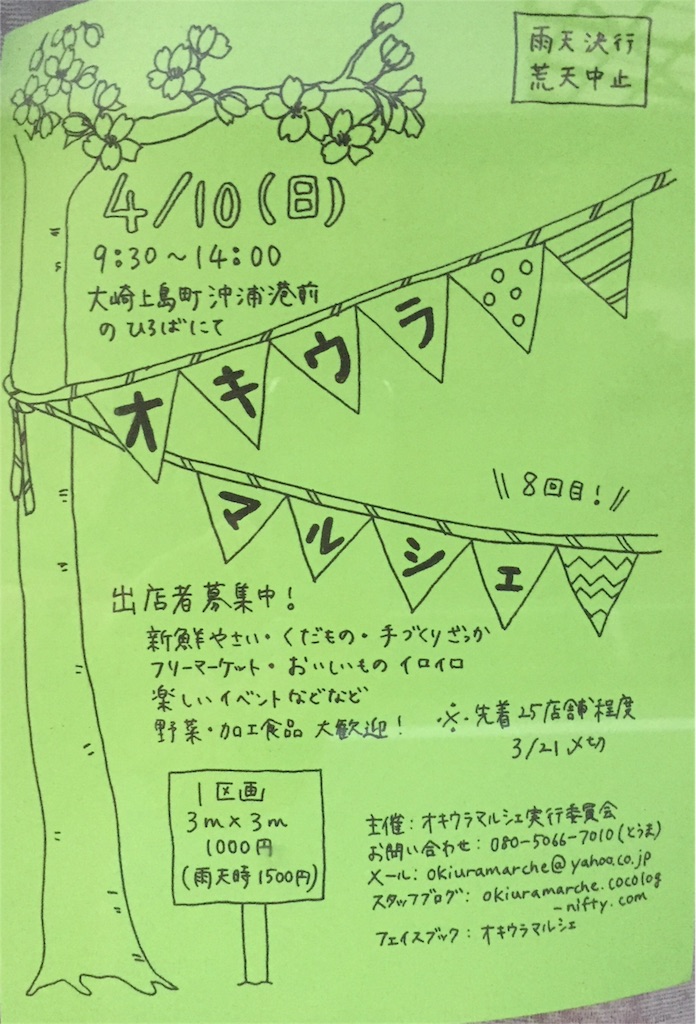 雨天決行
荒天中止
4/10(日)
9:30～14:00
大崎上島町沖浦港前
のひろばにて
オキウラ
マルシェ
\\ 8回目! //
出店者募集中!
新鮮やさい・くだもの・手づくりざっか
フリーマーケット・おいしいものイロイロ
楽しいイベントなどなど
野菜・加工食品 大歓迎!
※先着25店舗程度
3/21〆切
1区画
3m×3m
1000円
(雨天時1500円)
主催:オキウラマルシェ実行委員会
お問い合わせ:080-5066-7010(とうま)
メール:okiuramarche@yahoo.co.jp
スタッフブログ:okiuramarche.cocolog
-nifty.com
フェイスブック:オキウラマルシェ